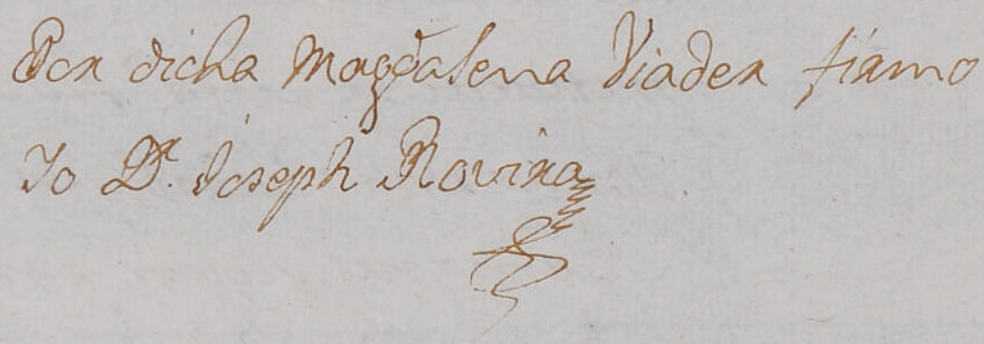 Por dicha Magdalena Viader firmo
Yo Dr. Joseph Rovira